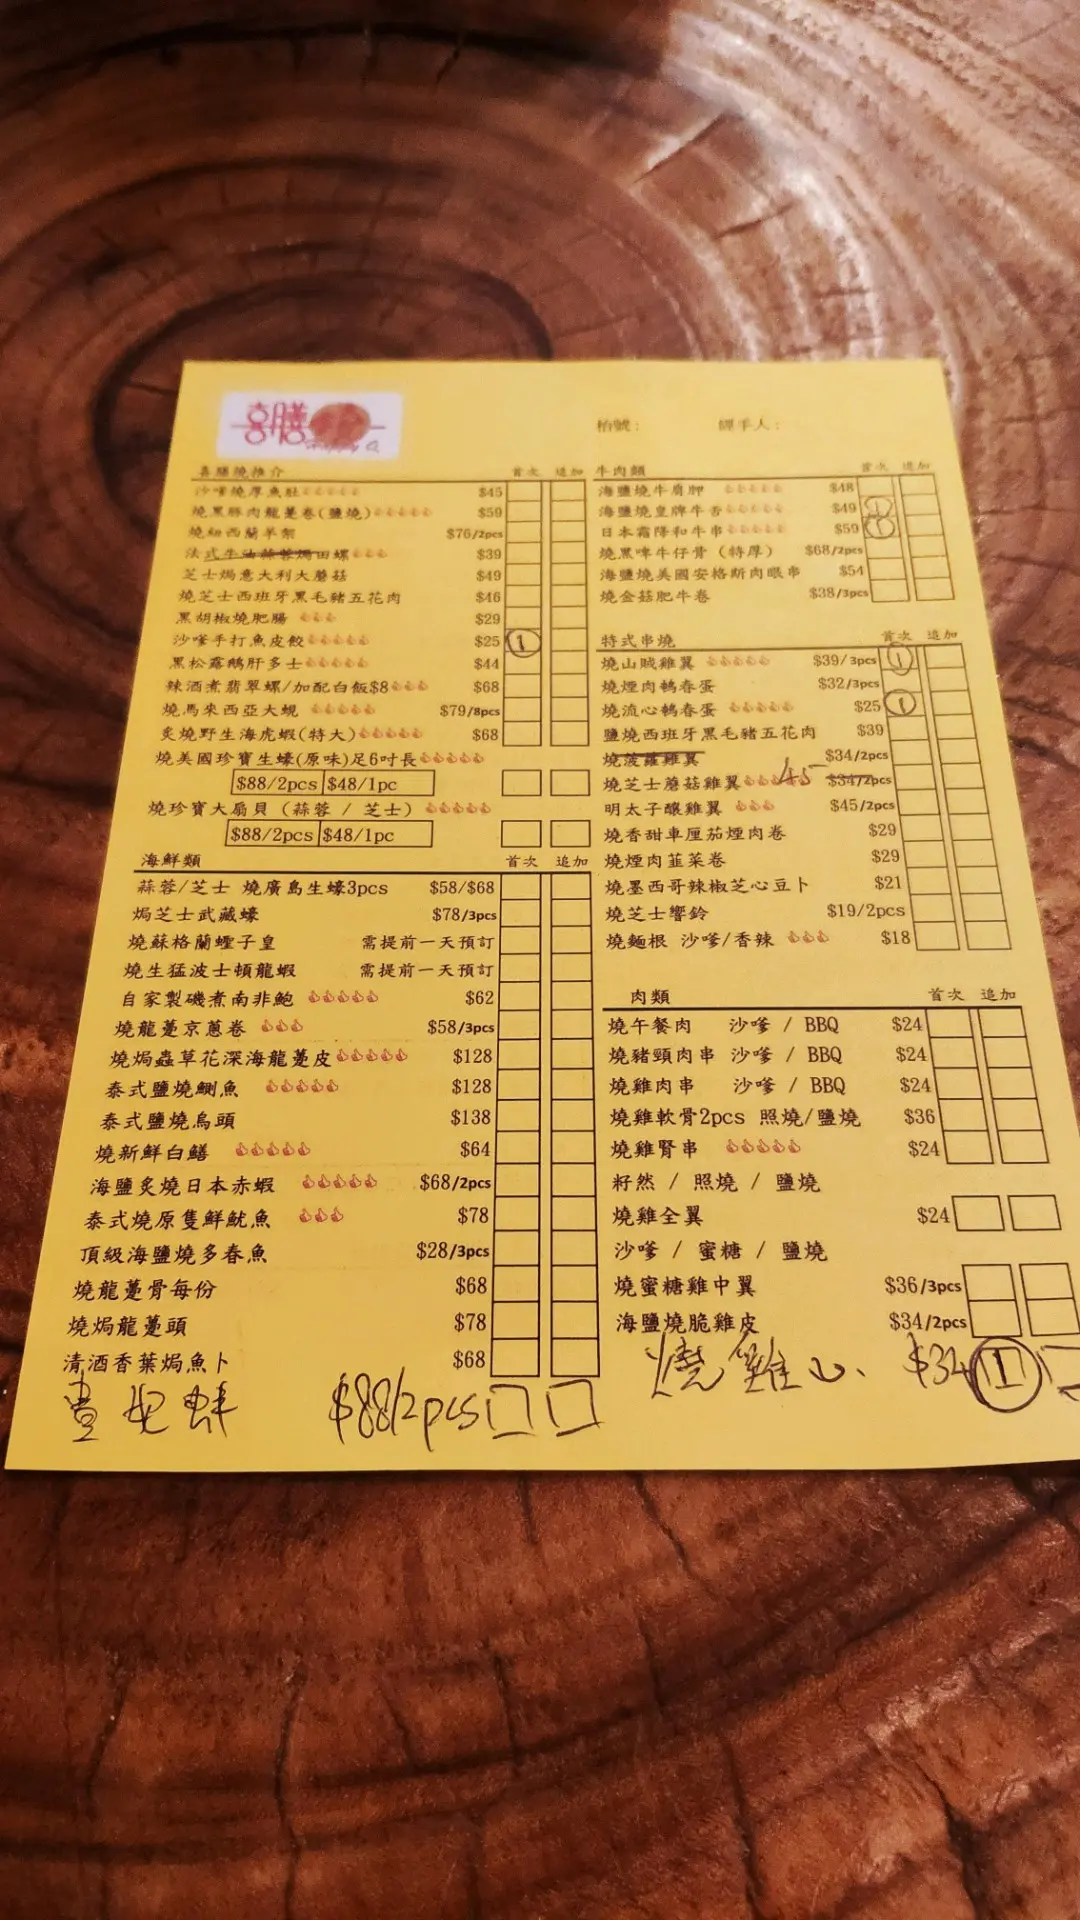 喜膳
枱號： 經手人：
喜膳燒推介 首次 追加
沙嗲燒厚魚肚 $45
燒黑豚肉龍躉卷(鹽燒) $59
燒紐西蘭羊架 $76/2pcs
法式牛油蒜蓉焗田螺 $39
芝士焗意大利大蘑菇 $49
燒芝士西班牙黑毛豬五花肉 $46
黑胡椒燒肥腸 $29
沙嗲手打魚皮餃 $25 1
黑松露鵝肝多士 $44
辣酒煮翡翠螺/加配白飯$8 $68
燒馬來西亞大蜆 $79/8pcs
炙燒野生海虎蝦(特大) $68
燒美國珍寶生蠔(原味)足6吋長
$88/2pcs $48/1pc
燒珍寶大扇貝 (蒜蓉 / 芝士)
$88/2pcs $48/1pc
海鮮類 首次 追加
蒜蓉/芝士 燒廣島生蠔3pcs $58/$68
焗芝士武藏蠔 $78/3pcs
燒蘇格蘭蟶子皇 需提前一天預訂
燒生猛波士頓龍蝦 需提前一天預訂
自家製磯煮南非鮑 $62
燒龍躉京蔥卷 $58/3pcs
燒焗蟲草花深海龍躉皮 $128
泰式鹽燒鯛魚 $128
泰式鹽燒烏頭 $138
燒新鮮白鱔 $64
海鹽炙燒日本赤蝦 $68/2pcs
泰式燒原隻鮮魷魚 $78
頂級海鹽燒多春魚 $28/3pcs
燒龍躉骨每份 $68
燒焗龍躉頭 $78
清酒香葉焗魚卜 $68
貴妃蚌 $88/2pcs
牛肉類 首次 追加
海鹽燒牛肩胛 $48
海鹽燒皇牌牛舌 $49 1
日本霜降和牛串 $59 1
燒黑啤牛仔骨 (特厚) $68/2pcs
海鹽燒美國安格斯肉眼串 $54
燒金菇肥牛卷 $38/3pcs
特式串燒 首次 追加
燒山賊雞翼 $39/3pcs 1
燒煙肉鵪春蛋 $32/3pcs
燒流心鵪春蛋 $25 1
鹽燒西班牙黑毛豬五花肉 $39
燒菠蘿雞翼 $34/2pcs
燒芝士蘑菇雞翼 45 $34/2pcs
明太子釀雞翼 $45/2pcs
燒香甜車厘茄煙肉卷 $29
燒煙肉韮菜卷 $29
燒墨西哥辣椒芝心豆卜 $21
燒芝士響鈴 $19/2pcs
燒麵根 沙嗲/香辣 $18
肉類 首次 追加
燒午餐肉 沙嗲 / BBQ $24
燒豬頸肉串 沙嗲 / BBQ $24
燒雞肉串 沙嗲 / BBQ $24
燒雞軟骨2pcs 照燒/鹽燒 $36
燒雞腎串 $24
籽然 / 照燒 / 鹽燒
燒雞全翼 $24
沙嗲 / 蜜糖 / 鹽燒
燒蜜糖雞中翼 $36/3pcs
海鹽燒脆雞皮 $34/2pcs
燒雞心 $34 1